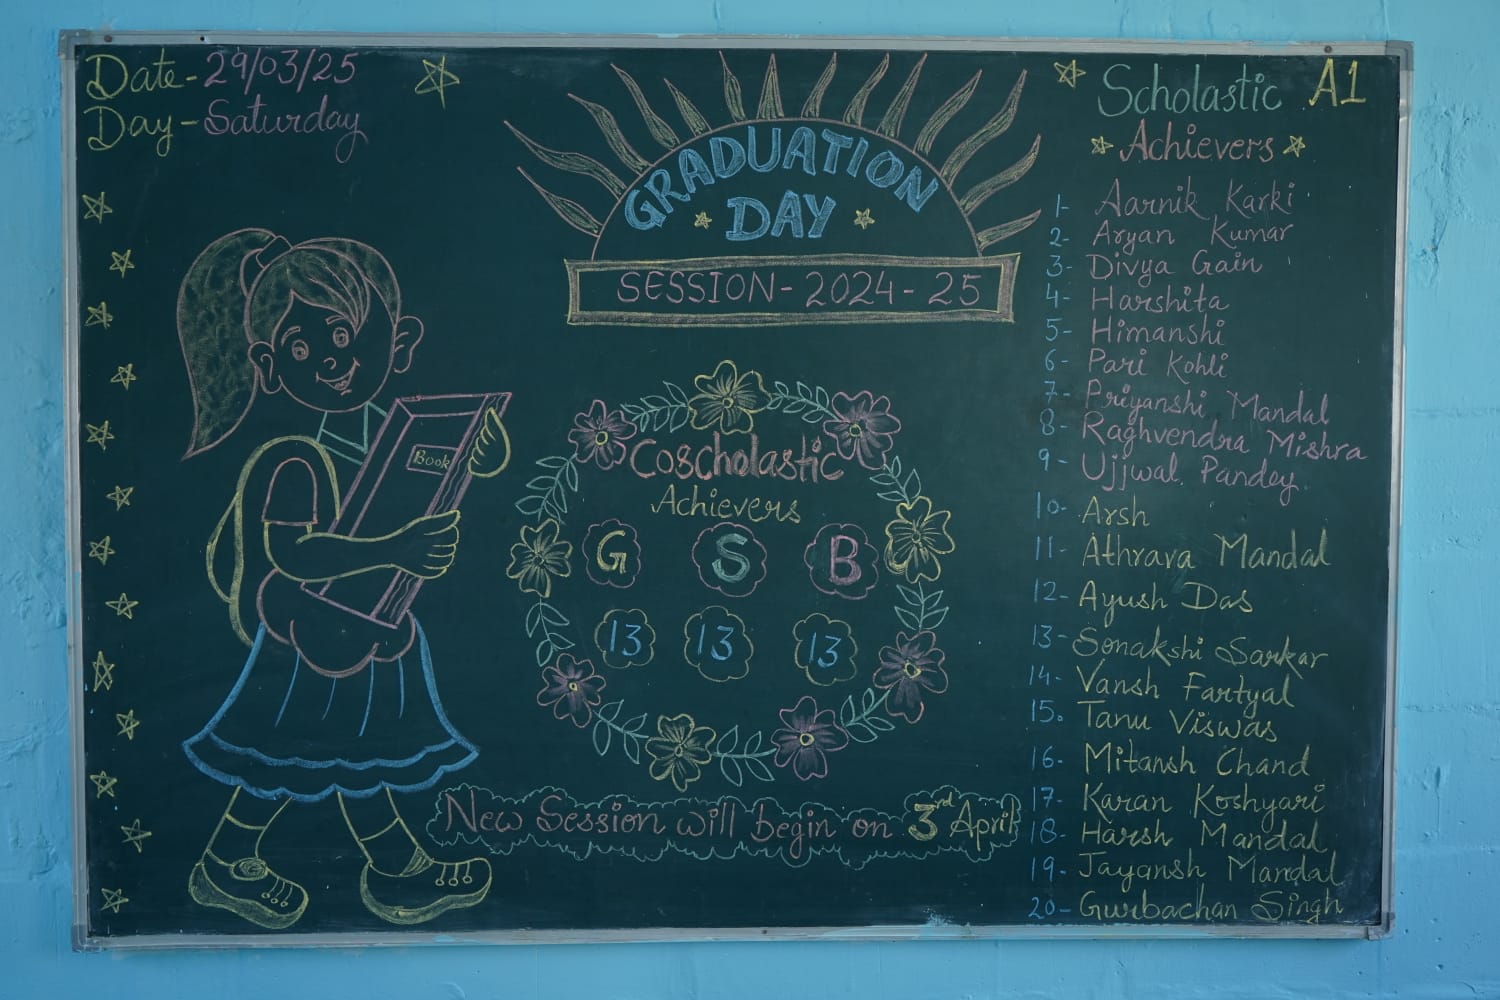 Date-29/03/25
Day-Saturday
GRADUATION
DAY
SESSION-2024-25
Book
Coscholastic
Achievers
G S B
13 13 13
New Session will begin on 3rd April
Scholastic A1
Achievers
1- Aarnik Karki
2- Aryan Kumar
3- Divya Gain
4- Harshita
5- Himanshi
6- Pari Kohli
7- Priyanshi Mandal
8- Raghvendra Mishra
9- Ujjwal Pandey
10- Arsh
11- Athrava Mandal
12- Ayush Das
13- Sonakshi Sarkar
14- Vansh Fartyal
15. Tanu Viswas
16- Mitansh Chand
17- Karan Koshyari
18- Harsh Mandal
19- Jayansh Mandal
20- Gurbachan Singh